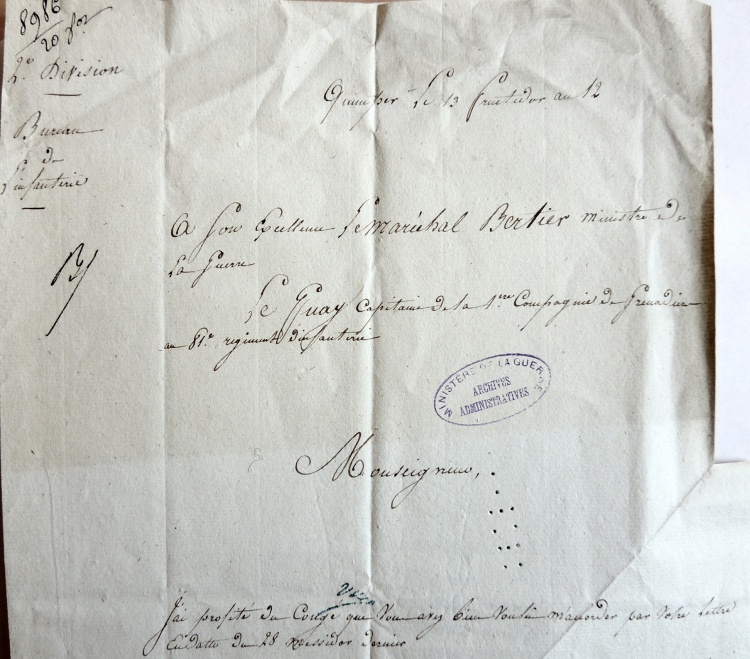 8986
20 f.or
2.e Division
Bureau
de
L'infanterie
Quimper Le 13 fructidor an 12
A Son Excellence Le Maréchal Bertier ministre de
La Guerre
Le Guay Capitaine de la 1.ere Compagnie de Grenadiers
au 81.e regiment d'infanterie
MINISTÈRE DE LA GUERRE
ARCHIVES
ADMINISTRATIVES
Monseigneur,
J'ai profité du Congé que Vous avez bien Voulu m'accorder par Votre Lettre
En datte du 28 messidor dernier